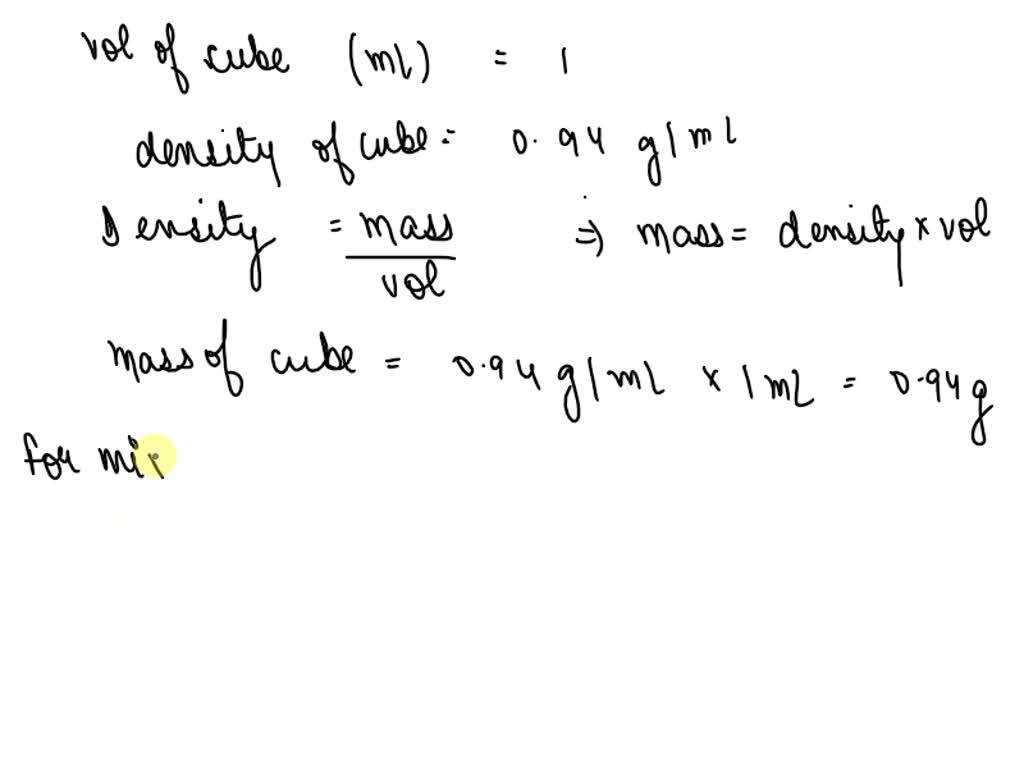 vol of cube (mL) = 1
density of cube = 0.94 g/mL
Density = mass / vol ⇒ mass = density × vol
mass of cube = 0.94 g/mL × 1 mL = 0.94 g
for mix